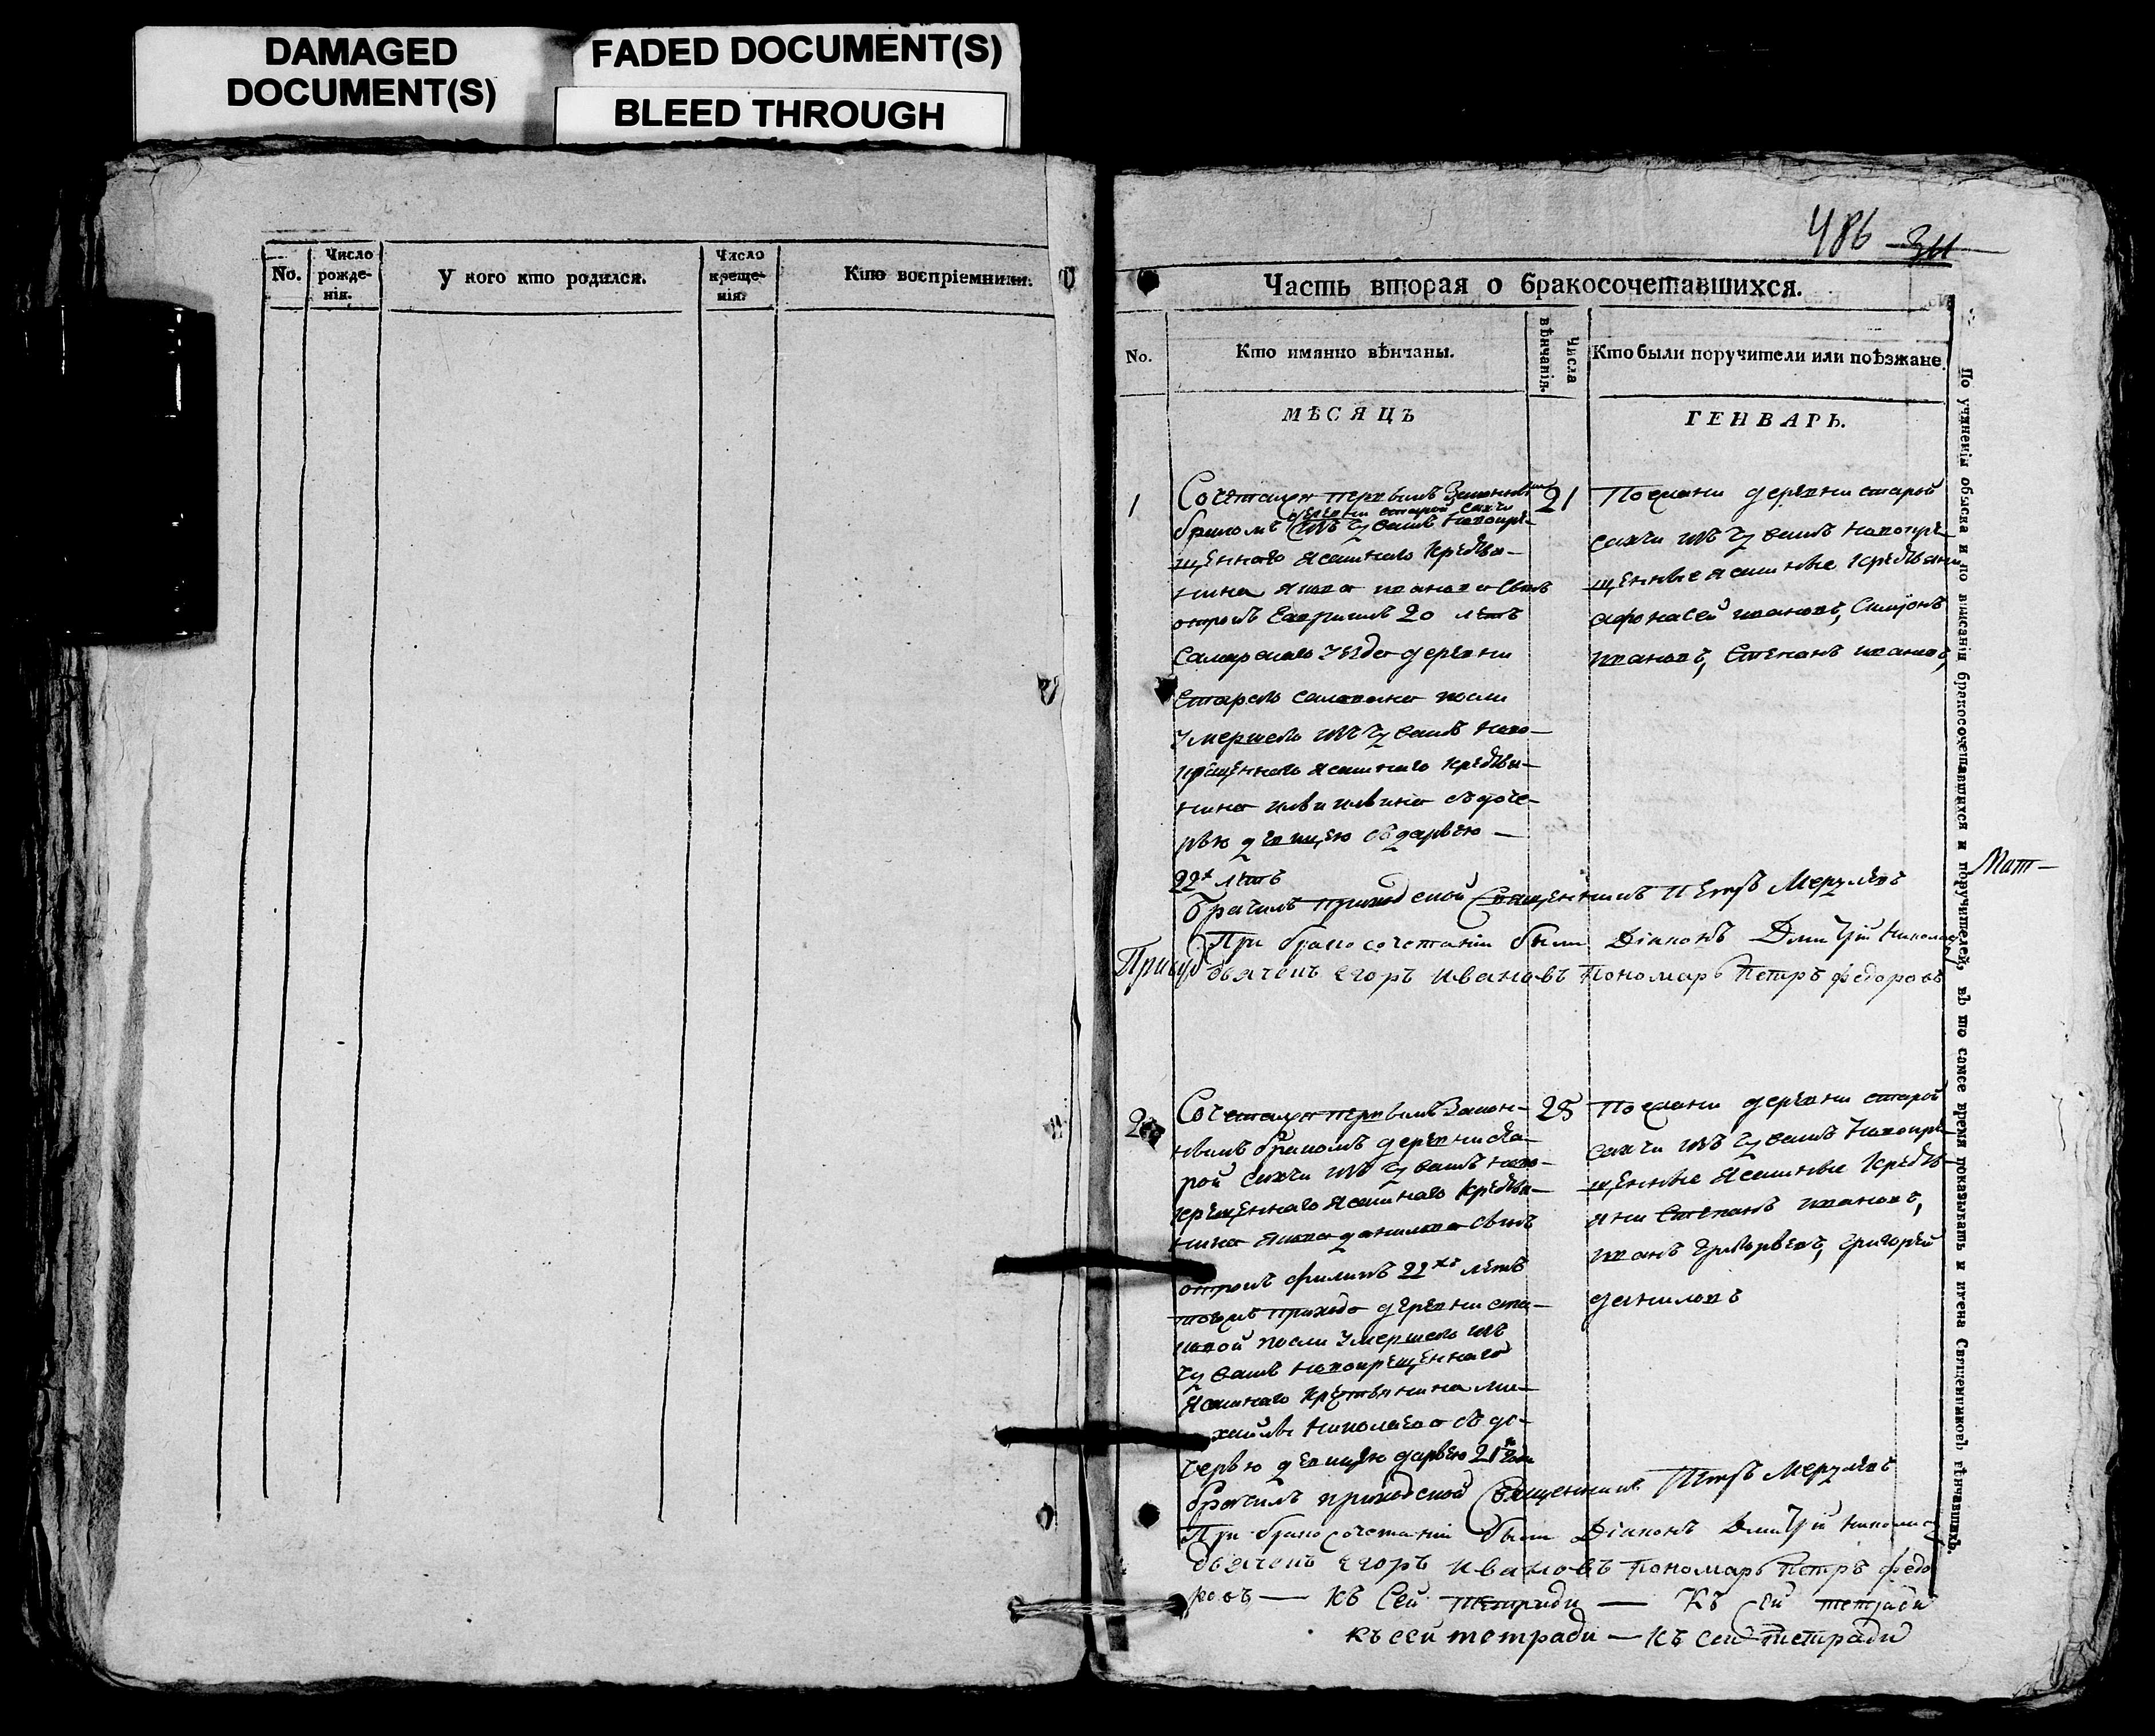 DAMAGED
DOCUMENT(S)
FADED DOCUMENT(S)
BLEED THROUGH
No.
Число
рожде-
нія.
У кого кто родился.
Число
креще-
нія.
Кто воспріемники.
486
Часть вторая о бракосочетавшихся.
No.
Кто имянно вѣнчаны.
Числа
вѣнчанія.
Кто были поручители или поѣзжане
МѢСЯЦЪ
ГЕНВАРЬ.
1
Сочетался первымъ Законнымъ
деревни старой Сахчи
бракомъ изъ чувашъ новокре-
щеннаго ясашнаго крестья-
нина Якова иванова сынъ
отрокъ Гаврилъ 20 летъ
Самарскаго уезда деревни
Старого посли
умершего изъ чувашъ ново-
крещеннаго ясашнаго крестья-
нина ильи ильина съ доче-
рью девицею съ дарьею —
22х летъ
21
Поезжани деревни старой
сахчи изъ чувашъ новокре-
щенные ясашные крестьяни
афонасей ивановъ, Симіонъ
ивановъ, Степанъ ивановъ,
Брачилъ приходской Священникъ Петръ
При бракосочетаніи были Діаконъ Дмитрій Николаевъ
дьячекъ Егоръ Ивановъ Пономарь Петръ Федоровъ
2
Сочетался первымъ Закон-
нымъ бракомъ деревни ста-
рой Сахчи изъ чувашъ ново-
крещеннаго ясашнаго крестья-
нина Якова данилова сынъ
отрокъ филипъ 22хъ летъ
тогожъ прихода деревни
посли умершего изъ
чувашъ новокрещеннаго
ясашнаго крестьянина ми-
хайлы Николаева съ до-
черью девицею дарьею 21
25
Поезжани деревни старой
сахчи изъ чувашъ новокре-
щенные ясашные крестья-
яни Степанъ ивановъ,
иванъ Григорьевъ, Григорей
даниловъ
брачилъ приходской Священникъ Петръ
При бракосочетаніи были Діаконъ Дмитрій Николаевъ
дьячекъ Егоръ Ивановъ Пономарь Петръ Федо
ровъ — Къ Сей тетради — Къ Сей тетради
къ сей тетради — Къ сей тетради
По учиненіи обыска и по вписаніи бракосочетавшихся и поручителей, въ то самое время показывать и имена Священниковъ, вѣнчавшихъ.